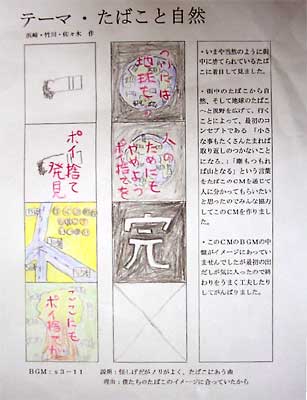 テーマ・たばこと自然
浜崎・竹川・佐々木 作
ポイ捨て
発見
ここにも
ポイ捨てが
ついには
地球も
人の
ためにも
やめよう
ポイ捨てを
完
・いまや当然のように街
中に捨てられているたば
こに着目して見ました。
・街中のたばこから自
然、そして地球のたばこ
へと視野を広げて、行く
ことによって、最初のコ
ンセプトである「小さ
な事もたくさんたまれば
取り返しのつかないこと
になる。」「塵もつもれ
ば山となる」という言葉
をたばこのCMを通じて
人に分かってもらいたい
と思ったのでみんな協力
してこのCMを作りまし
た。
・このCMのBGMの中
盤がイメージにあってい
ませんでしたが最初の出
だしが気に入ったので終
わりをうまく工夫したり
してがんばりました。
BGM：s3－11
説明：怪しげだがノリがよく、たばこにあう曲
理由：僕たちのたばこのイメージに合っていたから